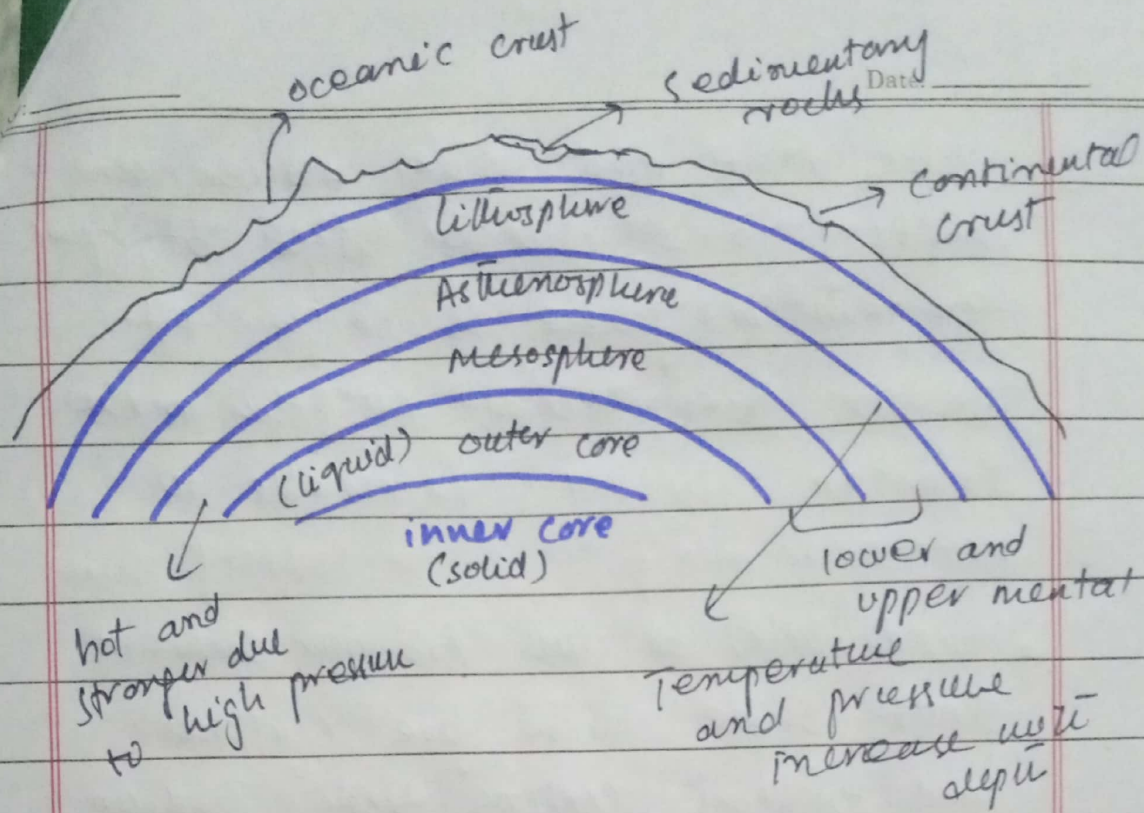 oceanic crust
sedimentary
rocks
Date
continental
crust
lithosphere
Asthenosphere
Mesosphere
(liquid) outer core
inner core
(solid)
lower and
upper mental
hot and
stronger due
to high pressure
Temperature
and pressure
increase with
depth